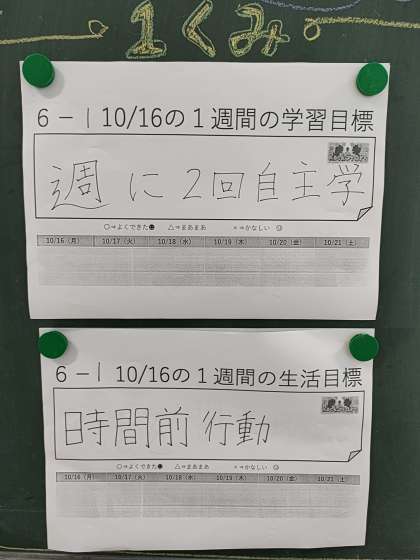 1くみ
6－1 10/16の1週間の学習目標
週に2回自主学
○⇒よくできた☻ △⇒まあまあ ×⇒かなしい ☹
10/16（月） 10/17（火） 10/18（水） 10/19（木） 10/20（金） 10/21（土）
6－1 10/16の1週間の生活目標
時間前行動
○⇒よくできた☻ △⇒まあまあ ×⇒かなしい ☹
10/16（月） 10/17（火） 10/18（水） 10/19（木） 10/20（金） 10/21（土）